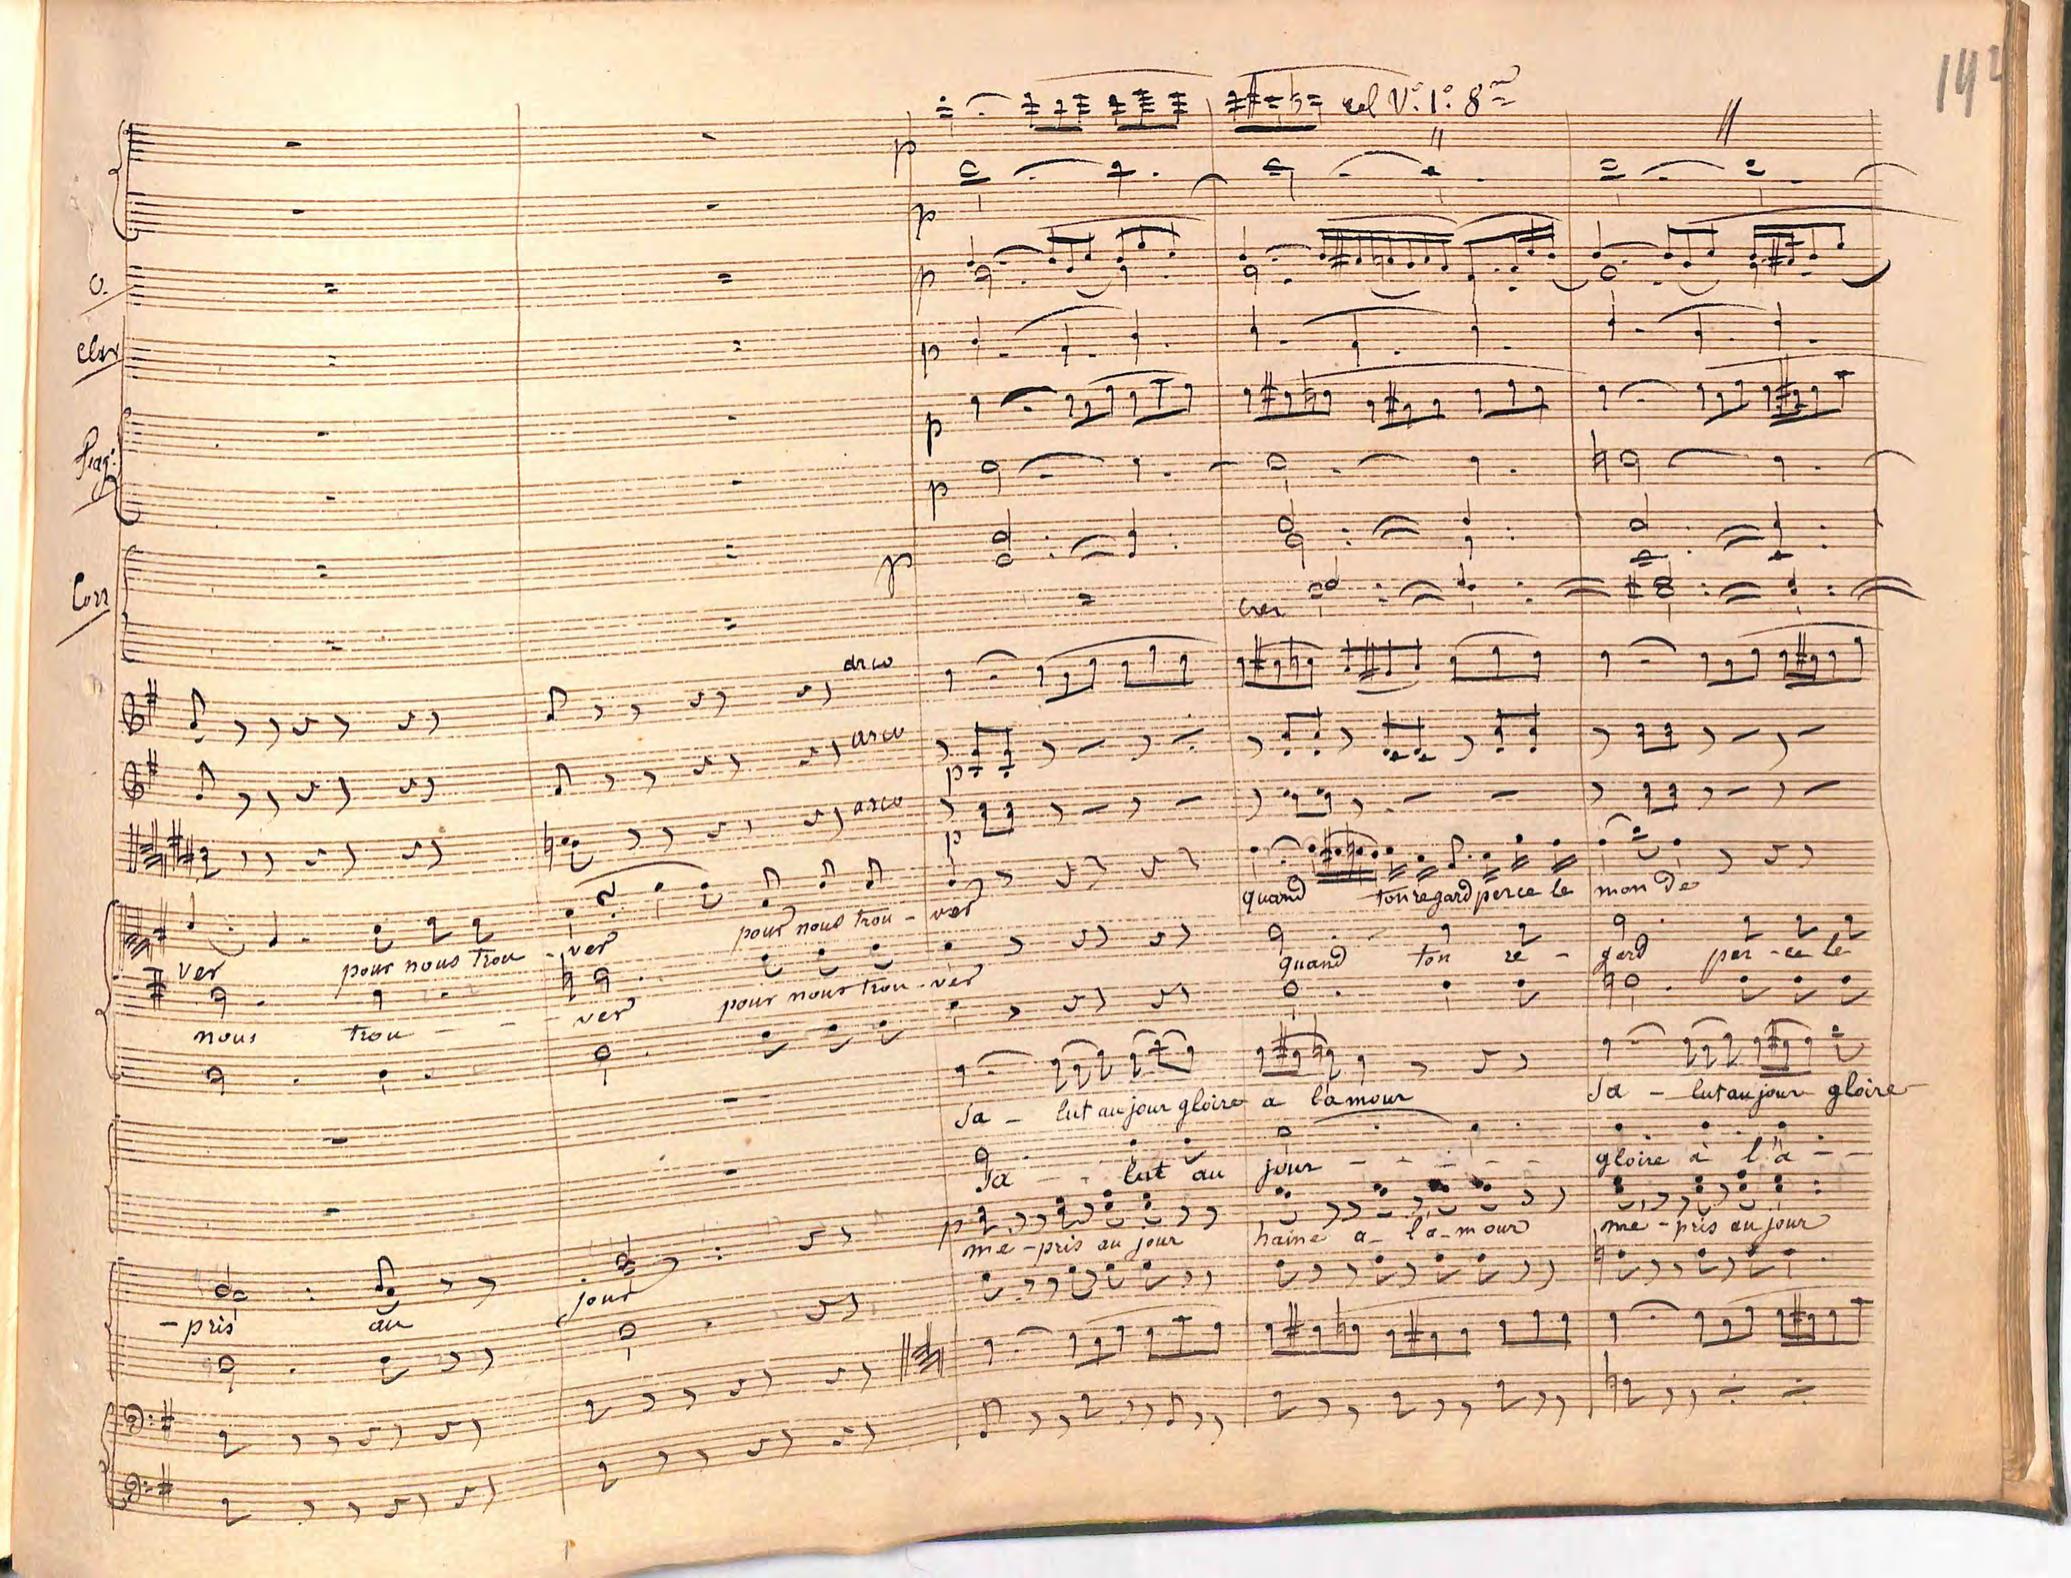 142
col Vº. 1º. 8va
p
p
O.
p
Clar
p
p
Fag:
p
Corr
p
cres
arco
arco
p
arco
p
quand ton regard perce le monde
ver pour nous trou - ver pour nous trou - ver
quand ton re - gard per - ce le
nous trou - - - ver pour nous trou - ver
Sa - lut au jour gloire a l'amour Sa - lut au jour gloire
Sa - - lut au jour - - - - - - gloire à l'a - -
p
me - pris au jour haine a - l'a - mour me - pris au jour
- pris au jour